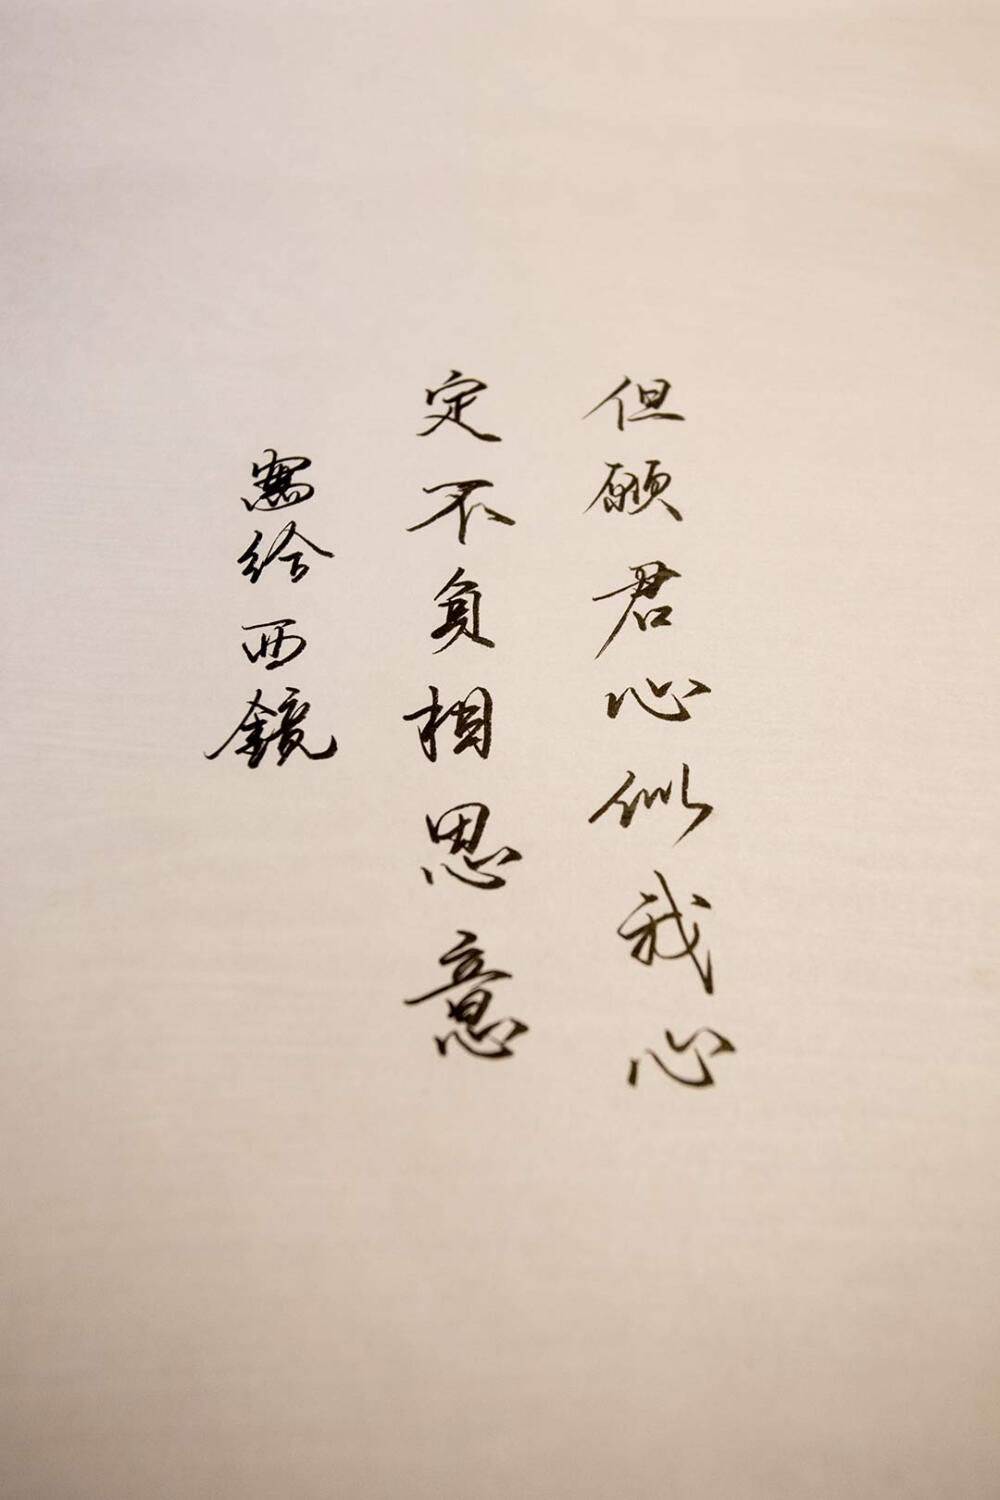 但願君心似我心
定不負相思意
寫給西鏡